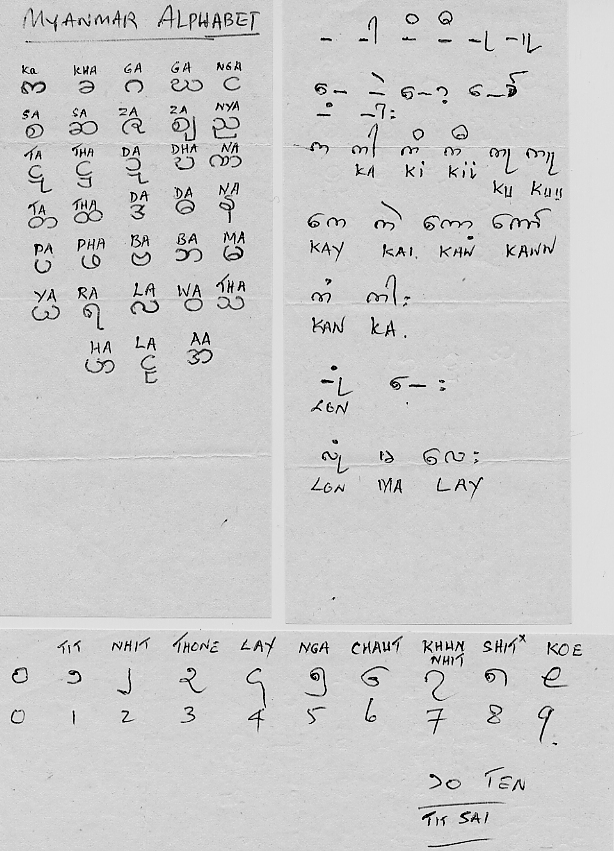 MYANMAR ALPHABET
Ka KHA GA GA NGA
က ခ ဂ ဃ င
SA SA ZA ZA NYA
စ ဆ ဇ ဈ ည
TA THA DA DHA NA
ဋ ဌ ဍ ဎ ဏ
TA THA DA DA NA
တ ထ ဒ ဓ န
PA PHA BA BA MA
ပ ဖ ဗ ဘ မ
YA RA LA WA THA
ယ ရ လ ဝ သ
HA LA AA
ဟ ဠ အ
က ကါ ကိ ကီ ကု ကူ
KA Ki Kii KU KUU
ကေ ကဲ ကော့ ကော်
KAY KAI. KAN KANN
ကံ ကါး
KAN KA.
LON
လုံ မ လေး
LON MA LAY
TIT NHIT THONE LAY NGA CHAUT KHUN NHIT SHIT KOE
၀ ၁ ၂ ၃ ၄ ၅ ၆ ၇ ၈ ၉
0 1 2 3 4 5 6 7 8 9.
၁၀ TEN
TIT SAI